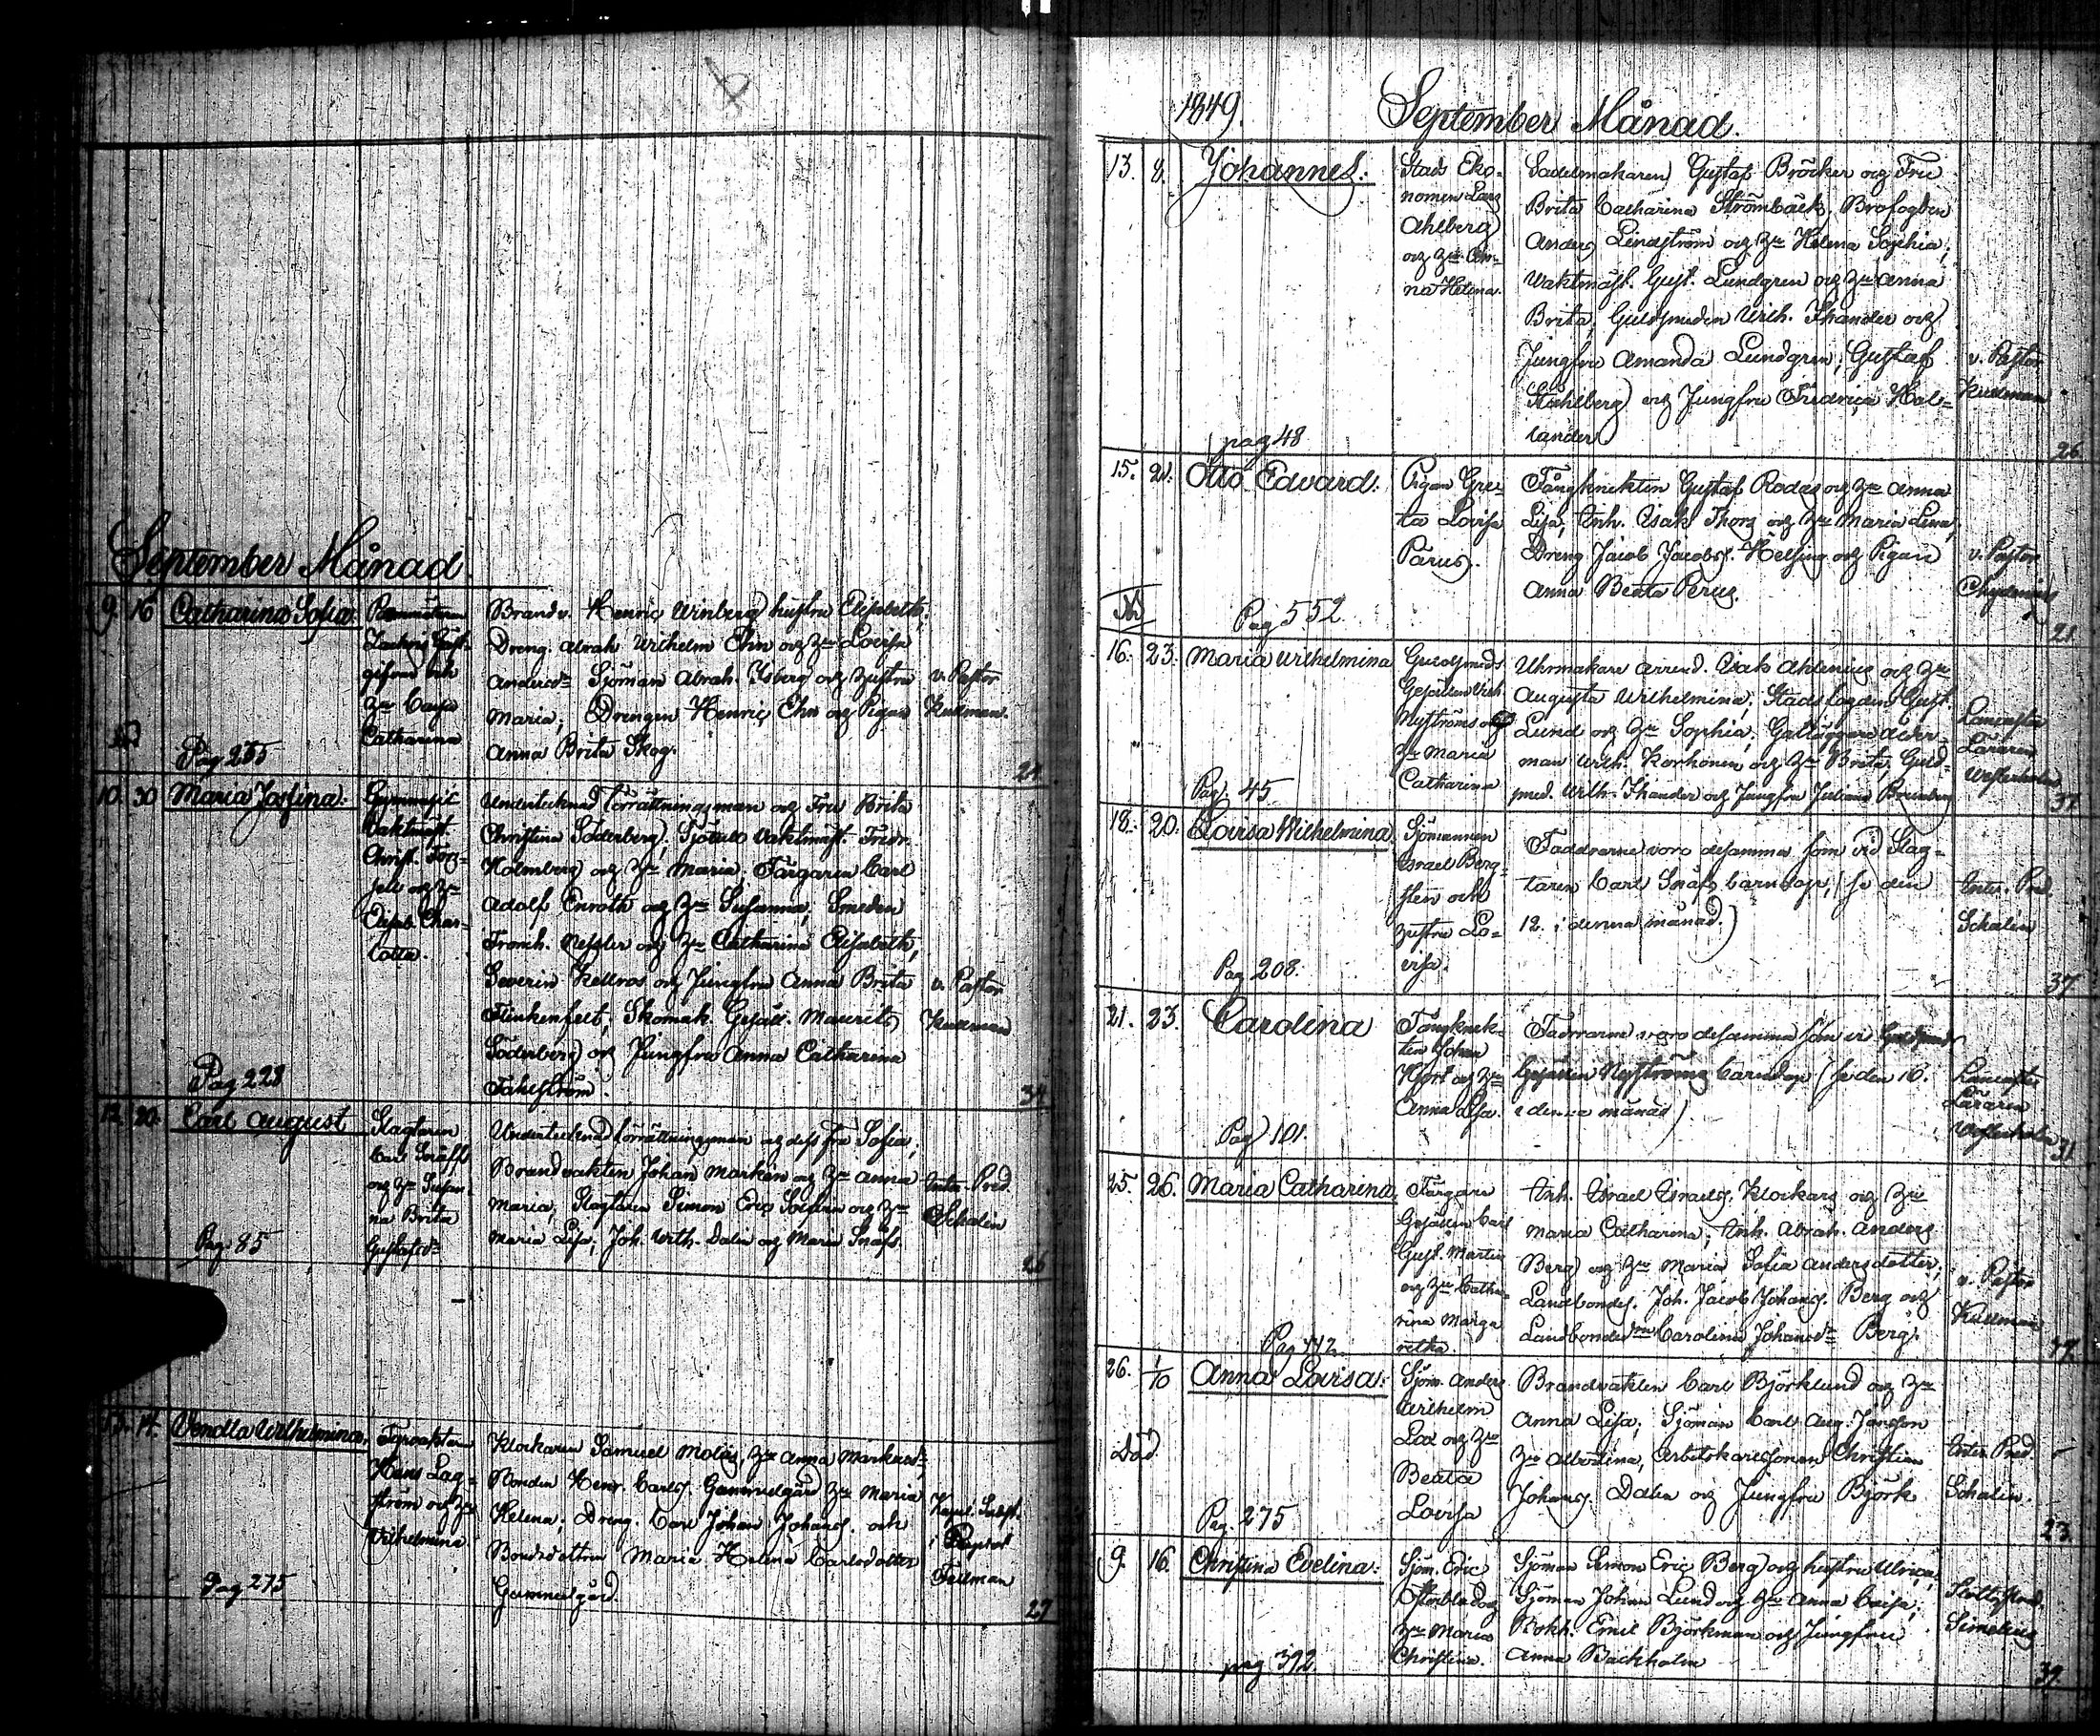 September Månad
9 16 Catharina Sofia.
och
Hu Cajsa
Catharina
Brandv. Henric Winberg hustru Elisabeth;
Dreng. Abrah Wilhelm Ehn och Hu Lovisa
Andersdr Sjöman Abrah. Ysberg och hustru
Maria; Drengen Henric Ehn och Pigan
Anna Brita Skog.
v. Pastor
Kullman.
Pag 255
24
10. 30 Maria Josefina.
Gymnasii
Vaktmäst.
Christ. Fors-
sell och Hu
Elisab. Char-
lotta.
Undertecknad Förrättningsman och Fru Brita
Christina Söderberg; Vaktmäst. Fridr.
Holmberg och Hu Maria, Färgaren Carl
Adolf Enroth och Hu Susanna; Smeden
Nessler och Hu Catharina Elisabeth;
Severin Kellros och Jungfru Anna Brita
Flinkenfelt; Skomak. Gesäll. Maurits
Söderberg och Jungfru Anna Catharina
Fahlström.
v. Pastor
Kullman
Pag 228
34
12. 20. Carl August
Slagtaren
Carl Snäfs
och Hu Susan-
na Brita
Gustafsdr
Undertecknad förrättningsman och dess fru Sofia;
Brandvakten Johan Markén och Hu Anna
Maria; Slagtaren Simon Eric och Hu
Maria Lisa; Joh. Wilh. Dalin och Maria Snäfs.
Enter. Pred.
Schalin
Pag. 85
26
13. 14. Vendla Wilhelmina.
Fyrvakten
Hans Lag-
ström och Hu
Wilhelmina
Klockaren Samuel Molis, Hu Anna Markusdr;
Bonden Henr. Carls. Gammelgård Hu Maria
Helena; Dreng. Carl Johan Johans. och
Bondedottren Maria Helena Carlsdotter
Gammelgård.
Fellman
Pag 275
27
1849. September Månad.
13. 8. Johannes.
Stads Eko-
nomen Lars
Ahlberg
och Hu An-
na Helena.
Sadelmakaren Gustaf Bröcker och Fru
Brita Catharina Strömbäck; Brofogden
Anders Lindström och Hu Helena Sophia;
Waktmäst. Gust. Lundgren och Hu Anna
Brita; Guldsmeden Wilh. Thander och
Jungfru Amanda Lundgren; Gustaf
Ståhlberg och Jungfru Fredrica Hol-
lander
v. Pastor
Kullman
pag 48
26
15. 21. Otto Edvard.
Pigan Gre-
ta Lovisa
Parus.
Fångknekten Gustaf Rodas och Hu Anna
Lisa; Enh. Isak Thors och Hu Maria Lena;
Dreng Jacob Jacobs. Helsing och Pigan
Anna Beata Perus.
v. Pastor
Chydenius
Pag 552
21
16. 23. Maria Wilhelmina
Guldsmeds
Gesällen Wilh.
Nyströms och
Hu Maria
Catharina
Uhrmakare Isak Ahlenius och Hu
Augusta Wilhelmina; Stadsfogden Gust.
Lund och Hu Sophia; Ålder-
man Wilh. Korhonen och Hu Brita; Guld-
smed. Wilh. Thander och Jungfru Juliana
Lancaster
Läraren
Westerholm
Pag. 45
37
18. 20. Lovisa Wilhelmina.
Sjömannen
Israel Berg-
sten och
hustru Lo-
visa.
Faddrarne voro desamma som vid Slag-
taren Carl Snäfs barndop, (se den
12. i denna månad.)
Enter. Pred.
Schalin
Pag 208.
37
21. 23. Carolina
Fångknek-
ten Johan
Hjort och Hu
Anna Lisa.
Faddrarne voro desamma som vid Guldsmeds
Gesällen Nyströms barndop (se den 16.
i denna månad)
Lancaster
Läraren
Westerholm
Pag 101.
31
25. 26. Maria Catharina.
Färgare
Gesällen Carl
Gust. Martin
och Hu Catha-
rina Marga
retha.
Enh. Israel Israels. Klockars och Hu
Maria Catharina; Enh. Abrah. Anders
Berg och Hu Maria Sofia Andersdotter;
Landbondes. Joh. Jacob Johans. Berg och
Landbondedrn Carolina Johansdr Berg.
v. Pastor
Kullman
26. 1/10 Anna Lovisa.
Död.
Sjöm. Anders
Wilhelm
Lax och Hu
Beata
Lovisa
Brandvakten Carl Björklund och Hu
Anna Lisa; Sjöman Carl Aug. Janson
Hu Albertina; Arbetskarlssonen Christian
Johans. Dalin och Jungfru Björk
Enter. Pred.
Schalin.
Pag. 275
23
9. 16. Christina Evelina.
Sjöm. Eric
Österblad och
Hu Maria
Christina.
Sjöman Simon Eric Berg och hustru Ulrica;
Sjöman Johan Lund och Hu Anna Caisa;
Bokh. Emil Björkman och Jungfru
Anna Backholm
Simelius
pag 392
39.